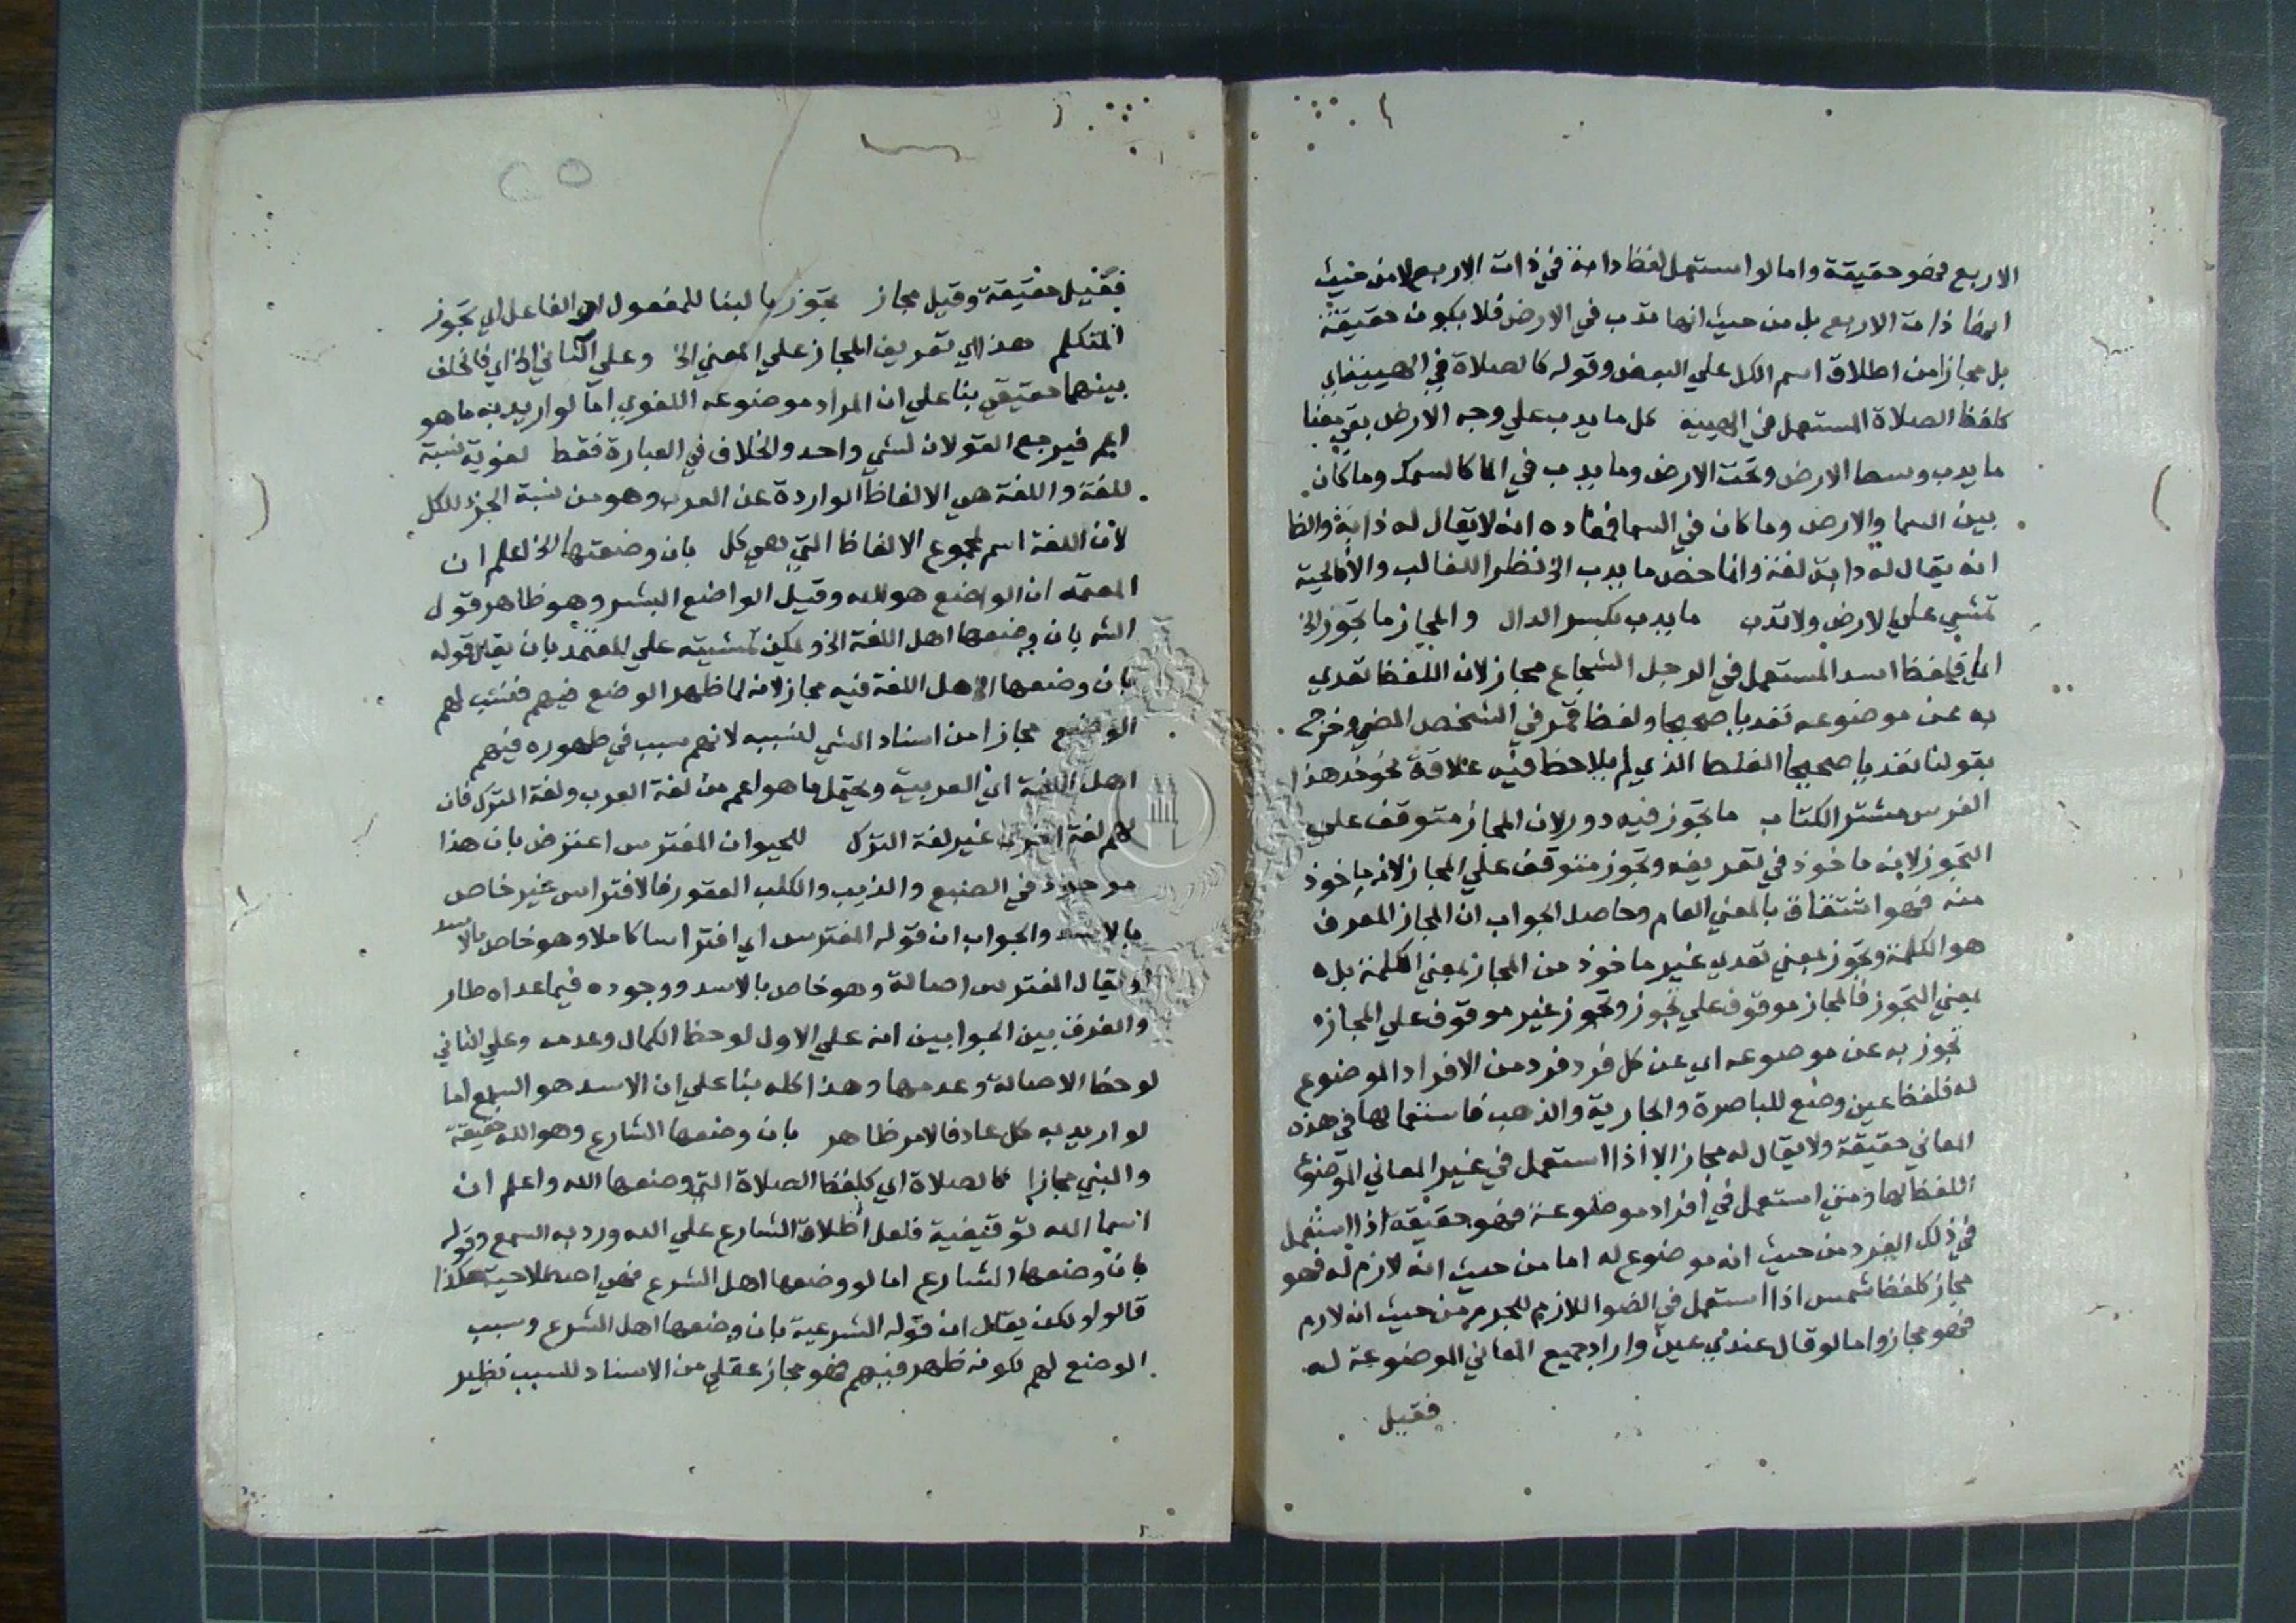 الاربع فهو حقيقة واما لو استعمل لفظ دابة في ذات الاربع لا من حيث
انها ذات الاربع بل من حيث انها تدب في الارض فلا يكون حقيقة
بل مجازا من اطلاق اسم الكل علي البعض وقوله كالصلاة في الهيئة اي
كلفظ الصلاة المستعمل في الهيية كل ما يدب علي وجه الارض بقي
ما يدب وسط الارض وتحت الارض وما يدب في الما كالسمك وما كان
بين السما والارض وما كان في السما فمفاده انه لا يقال له دابة والظا
انه يقال له دابة لغة وانما خص ما يدب الخ نظرا للغالب والا فالحية
تمشي علي الارض ولا تدب ما يدب بكسر الدال والمجاز ما تجوز الخ
اي فلفظ اسد المستعمل في الرجل الشجاع مجاز لان اللفظ تعدي
به عن موضوعه تعديا صحيحا ولفظ قمر في الشخص المضي وخرج
بقولنا تعديا صحيحا الغلط الذي لم يلاحظ فيه علاقة نحو خذ هذا
الفرس مشتر الكتاب ما تجوز فيه دور لان المجاز متوقف علي
التجوز لانه ماخوذ في تعريفه وتجوز متوقف علي المجاز لانه ماخوذ
منه فهو اشتقاق بالمعني العام وحاصل الجواب ان المجاز المعرف
هو الكلمة وتجوز بمعني تعدي غير ماخوذ من المجاز بمعني الكلمة بل
بمعني التجوز فالمجاز موقوف علي تجوز وتجوز غير موقوف علي المجاز
تجوز به عن موضوعه اي عن كل فرد فرد من الافراد الموضوع
له فلفظ عين وضع للباصرة والجارية والذهب فاستعمالها في هذه
المعاني حقيقة ولا يقال له مجاز الا اذا استعمل في غير المعاني الموضوع
اللفظ لها ومتي استعمل في افراد موضوعة فهو حقيقة اذا استعمل
في ذلك الفرد من حيث انه موضوع له اما من حيث انه لازم له فهو
مجاز كلفظ شمس اذا استعمل في الضو اللازم للجرم من حيث انه لازم
فهو مجاز واما لو قال عندي عين واراد جميع المعاني الموضوعة له
فقيل
فقيل حقيقة وقيل مجاز تجوز بالبنا للمفعول او الفاعل اي تجوز
المتكلم هذا اي تعريف المجاز علي المعني الخ وعلي الثاني الخ اي فالخلف
بينهما حقيقي بنا علي ان المراد موضوعه اللغوي اما لو اريد به ما هو
اعم فيرجع القولان لشي واحد والخلاف في العبارة فقط لغوية نسبة
للغة واللغة هي الالفاظ الواردة عن العرب وهو من نسبة الجز للكل
لان اللغة اسم لمجموع الالفاظ التي هي كل بان وضعتها الخ اعلم ان
المعتمد ان الواضع هو الله وقيل الواضع البشر وهو ظاهر قول
الشه بان وضعها اهل اللغة الخ ويمكن تمشيته علي المعتمد بان يقال قوله
بان وضعها اهل اللغة فيه مجاز لانه لما ظهر الوضع فيهم فنسب لهم
الوضع مجازا من اسناد الشي لسببه لانهم سبب في ظهوره فيهم
اهل اللغة اي العربية ويحتمل ما هو اعم من لغة العرب ولغة الترك فان
لهم لغة اخري غير لغة الترك للحيوان المفترس اعترض بان هذا
موجود في الضبع والذيب والكلب العقور فالافتراس غير خاص
بالاسد والجواب ان قوله المفترس اي افتراسا كاملا وهو خاص بالاسد
او يقال المفترس اصالة وهو خاص بالاسد ووجوده فيما عداه طار
والفرق بين الجوابين انه علي الاول لوحظ الكمال وعدمه وعلي الثاني
لوحظ الاصالة وعدمها وهذا كله بنا علي ان الاسد هو السبع اما
لو اريد به كل عاد فالامر ظاهر بان وضعها الشارع وهو الله حقيقة
والنبي مجازا كالصلاة اي كلفظ الصلاة التي وضعها الله واعلم ان
اسما الله توقيفية فلعل اطلاق الشارع علي الله ورد به السمع وقوله
بان وضعها الشارع اما لو وضعها اهل الشرع فهي اصطلاحية هكذا
قالوا ولكن يقال ان قوله الشرعية بان وضعها اهل الشرع وسبب
الوضع لهم لكونه ظهر فيهم فهو مجاز عقلي من الاسناد للسبب نظير